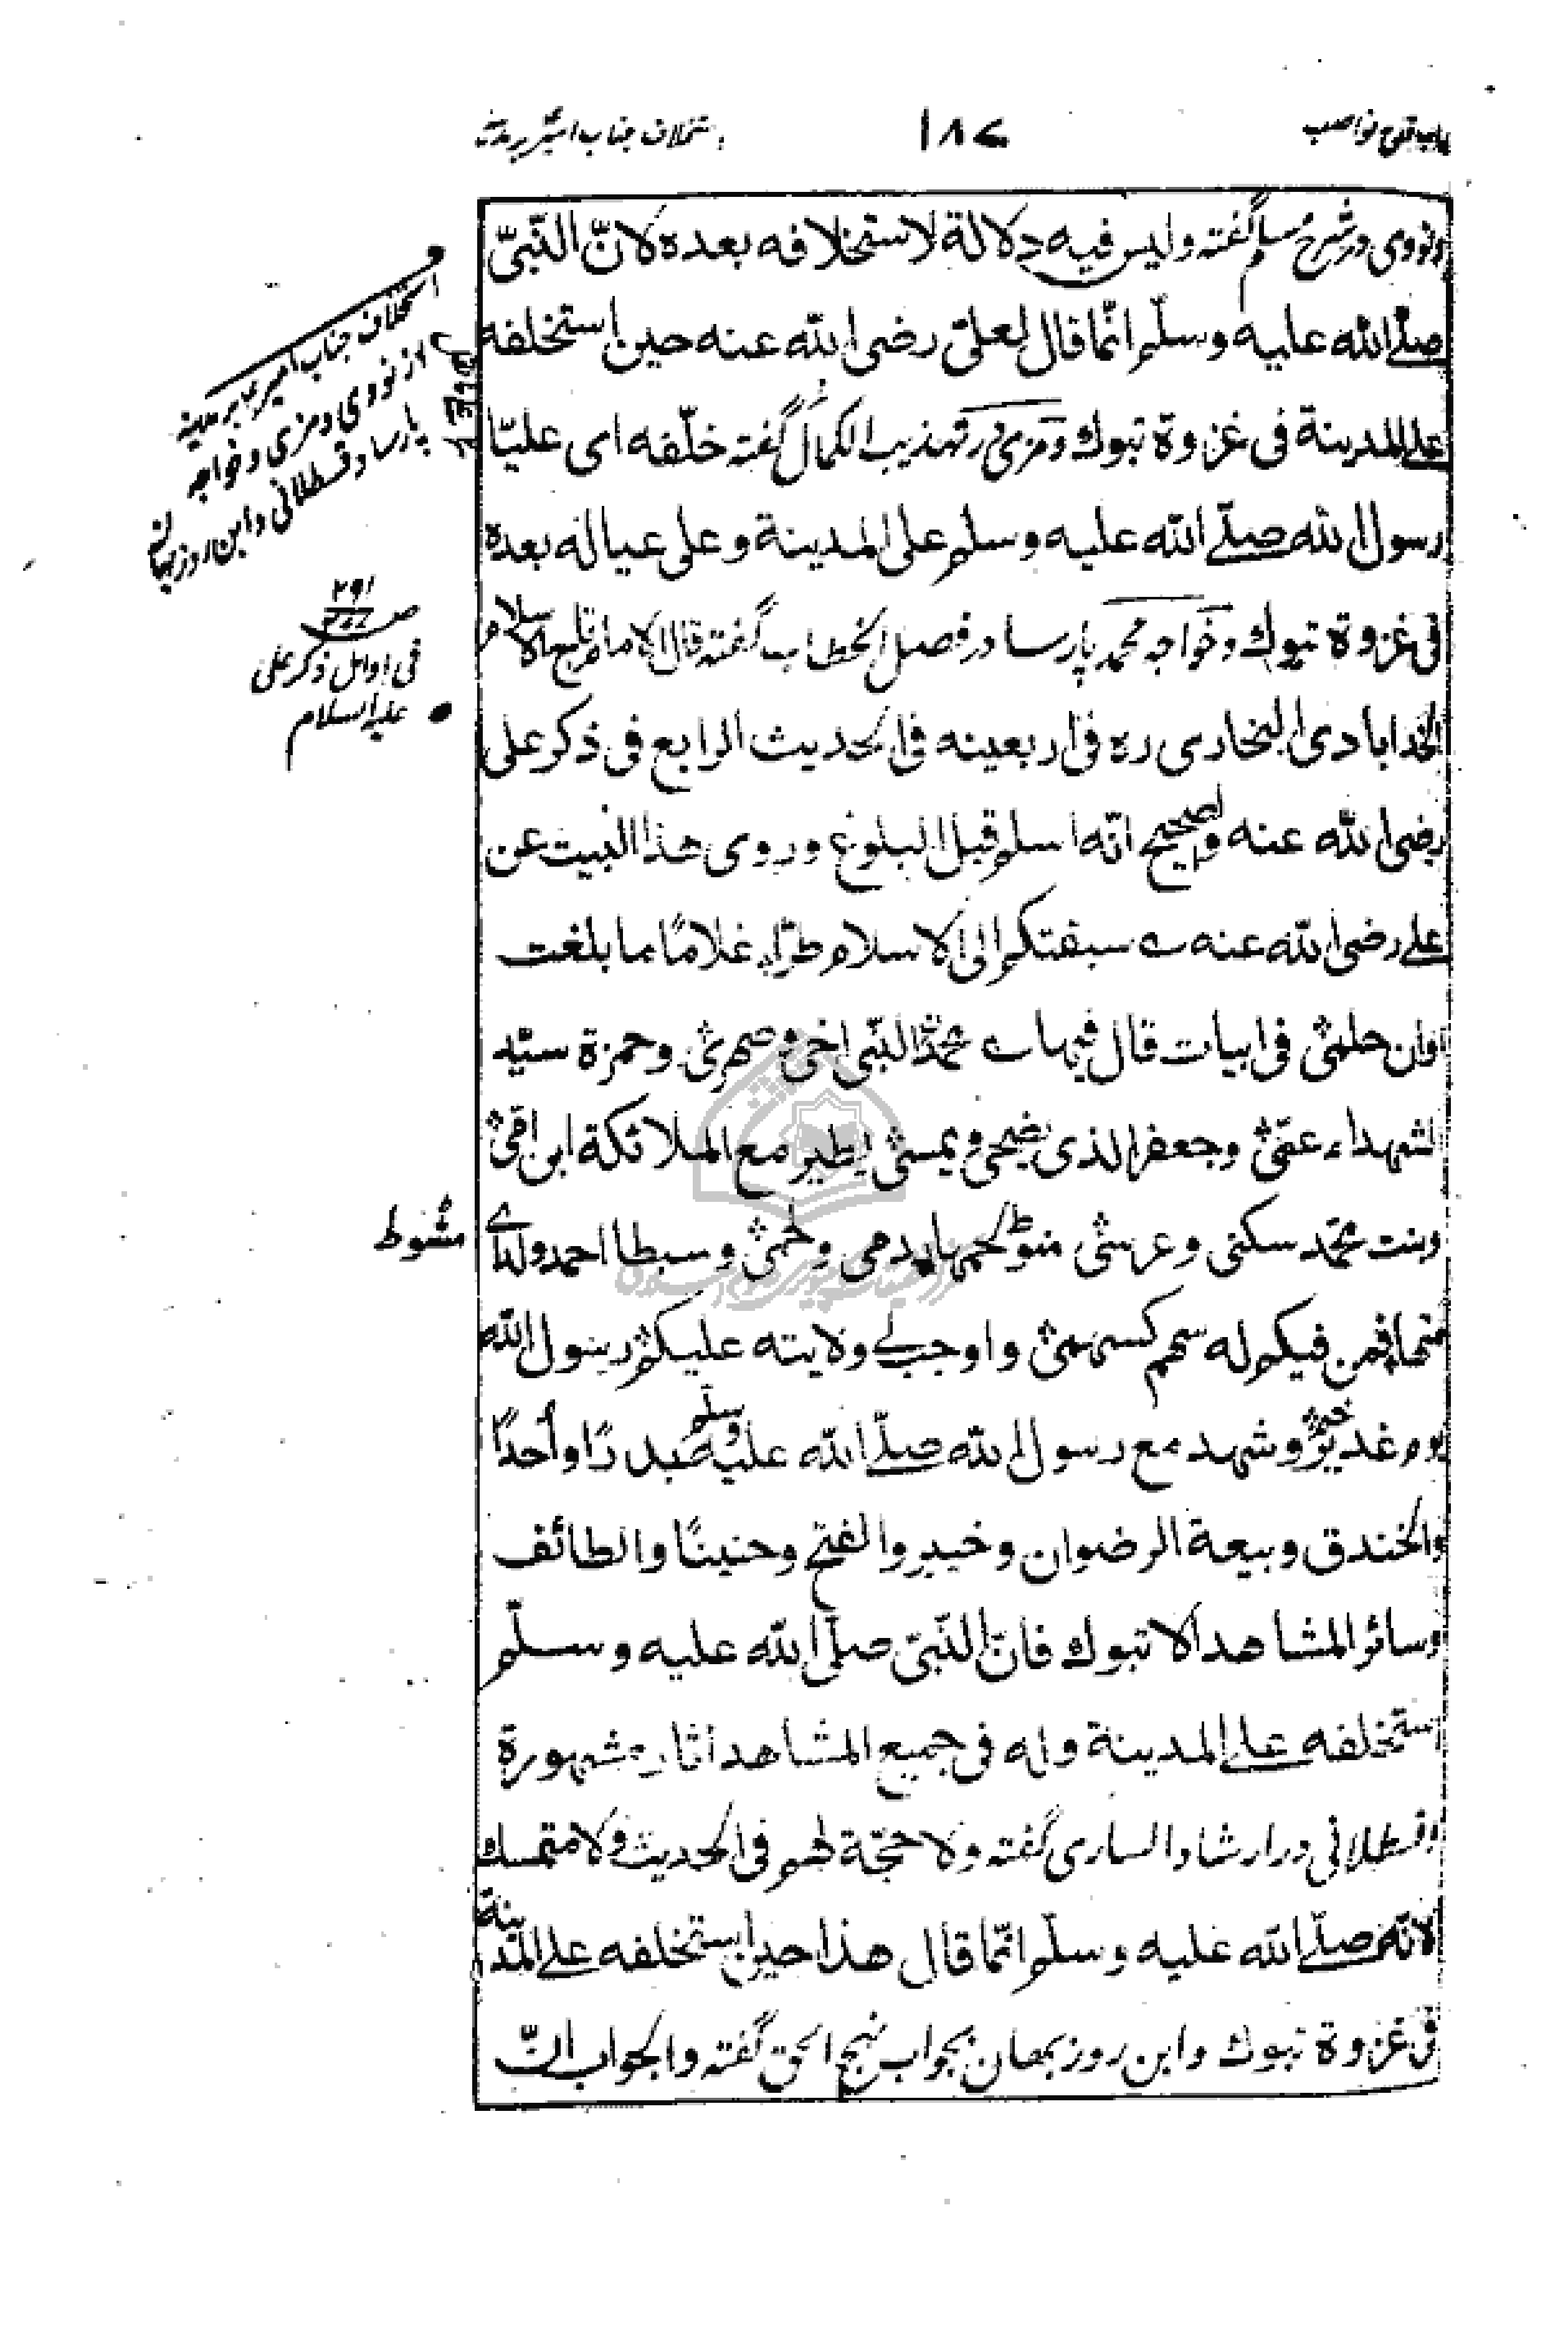 باب قدح نواصب
۱۸۷
استخلاف جناب امیر بر مدینه
ونووی در شرح مسلم گفته ولیس فیه دلالة لاستخلافه بعده لانّ النّبیّ
صلّی الله علیه وسلّم انّما قال لعلیّ رضی الله عنه حین استخلفه
علی المدینة فی غزوة تبوك ومزی در تهذیب الکمال گفته خلّفه ای علیّا
رسول الله صلّی الله علیه وسلم علی المدینة وعلی عیاله بعده
فی غزوة تبوك وخواجه محمد پارسا در فصل الخطاب گفته قال الامام تاج الاسلام
الخدابادی البخاری ره فی اربعینه فی الحدیث الرابع فی ذکر علی
رضی الله عنه والصحیح انّه اسلم قبل البلوغ وروی هذا البیت عن
علی رضی الله عنه سبقتکم الی الاسلام طرّا غلامًا ما بلغت
اوان حلمی فی ابیات قال فیها محمّد النّبی اخی وصهری وحمزة سیّد
الشهداء عمّی وجعفر الذی یضحی ویمسی یطیر مع الملائکة ابن امّی
وبنت محمّد سکنی وعرسی منوط لحمها بدمی ولحمی وسبطا احمد ولدای
مشوط
منها فمن فیکم له سهم کسهمی واوجب لی ولایته علیکم رسول الله
یوم غدیر خم وشهد مع رسول الله صلّی الله علیه وسلم بدرًا واُحدًا
والخندق وبیعة الرضوان وخیبر والفتح وحنینًا والطائف
وسائر المشاهد الا تبوك فانّ النّبیّ صلّی الله علیه وسلّم
استخلفه علی المدینة وله فی جمیع المشاهد آثار مشهورة
وقسطلانی در ارشاد الساری گفته ولا حجّة لهم فی الحدیث ولا متمسك
لانّه صلّی الله علیه وسلّم انّما قال هذا حین استخلفه علی المدینة
فی غزوة تبوك وابن روزبهان بجواب نهج الحق گفته والجواب انّ
استخلاف جناب امیر ع بر مدینه
از نووی ومزی وخواجه
پارسا وقسطلانی وابن روزبهان
۲۹۱
فی اوایل ذکر علی
علیه السلام